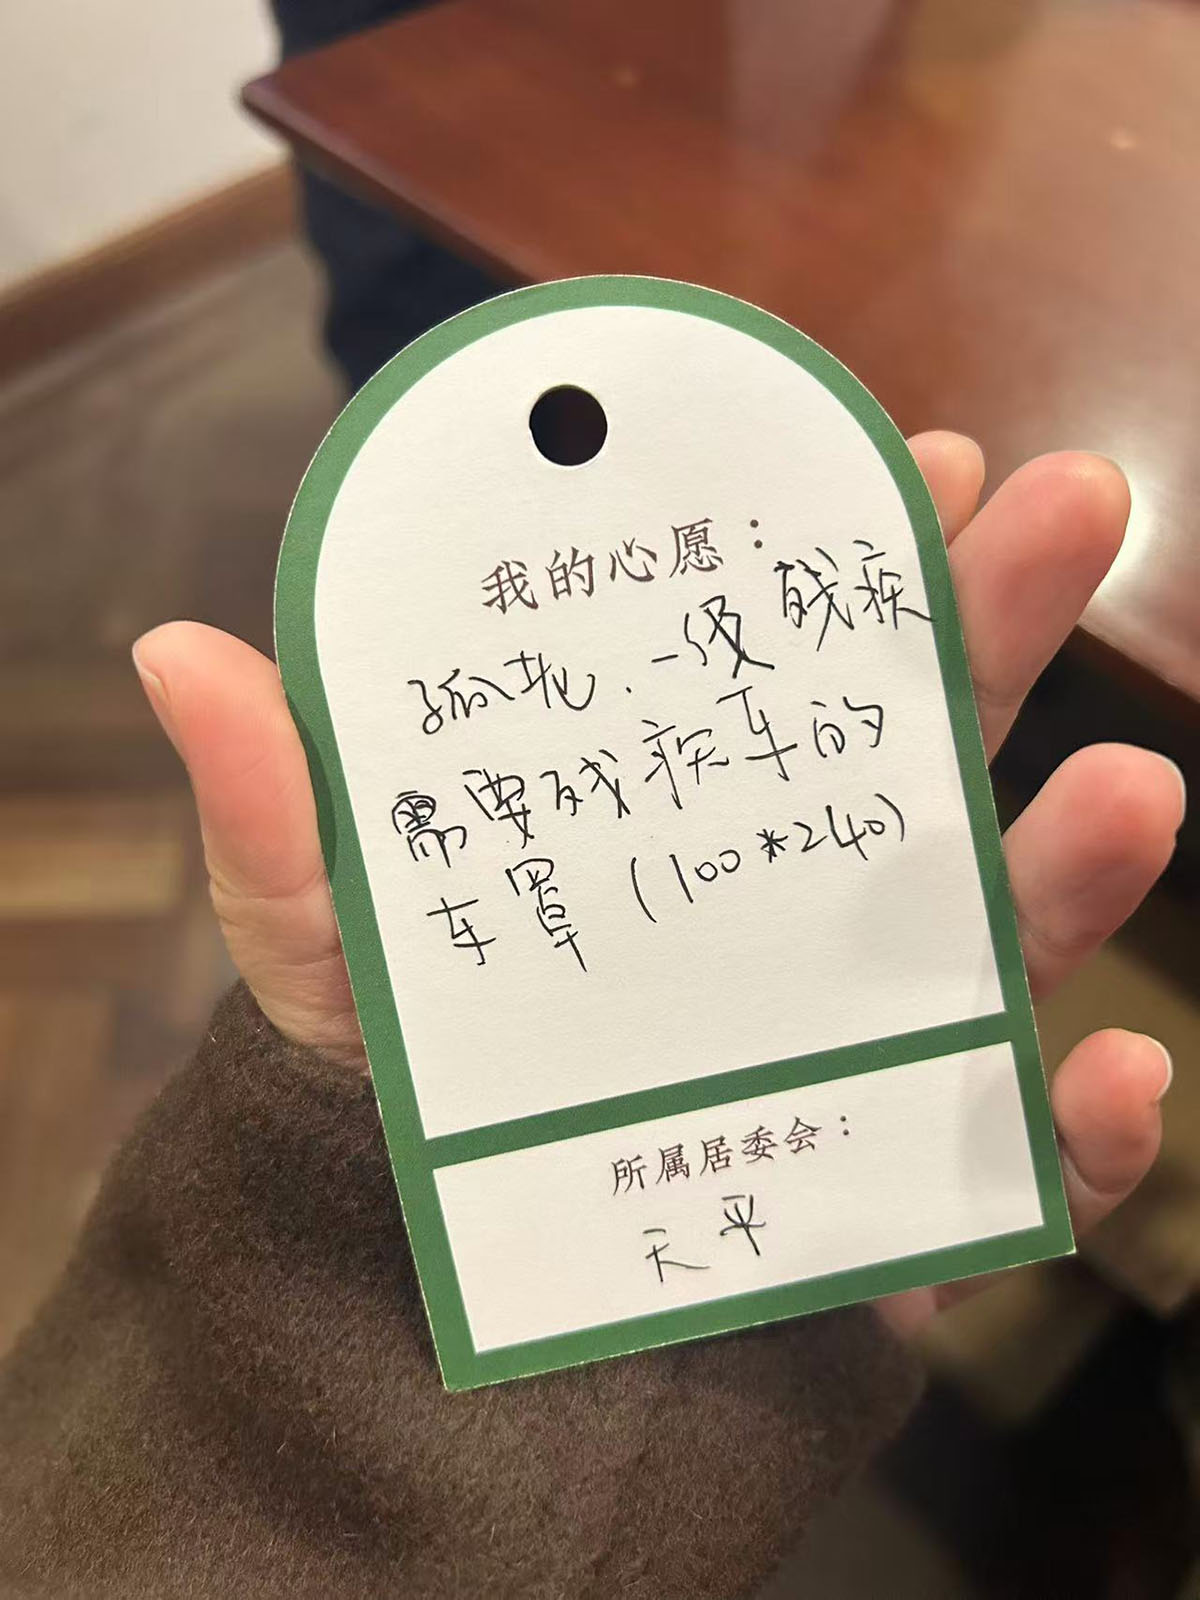 我的心愿：
孤老．一级残疾
需要残疾车的
车罩（100*240）
所属居委会：
天平